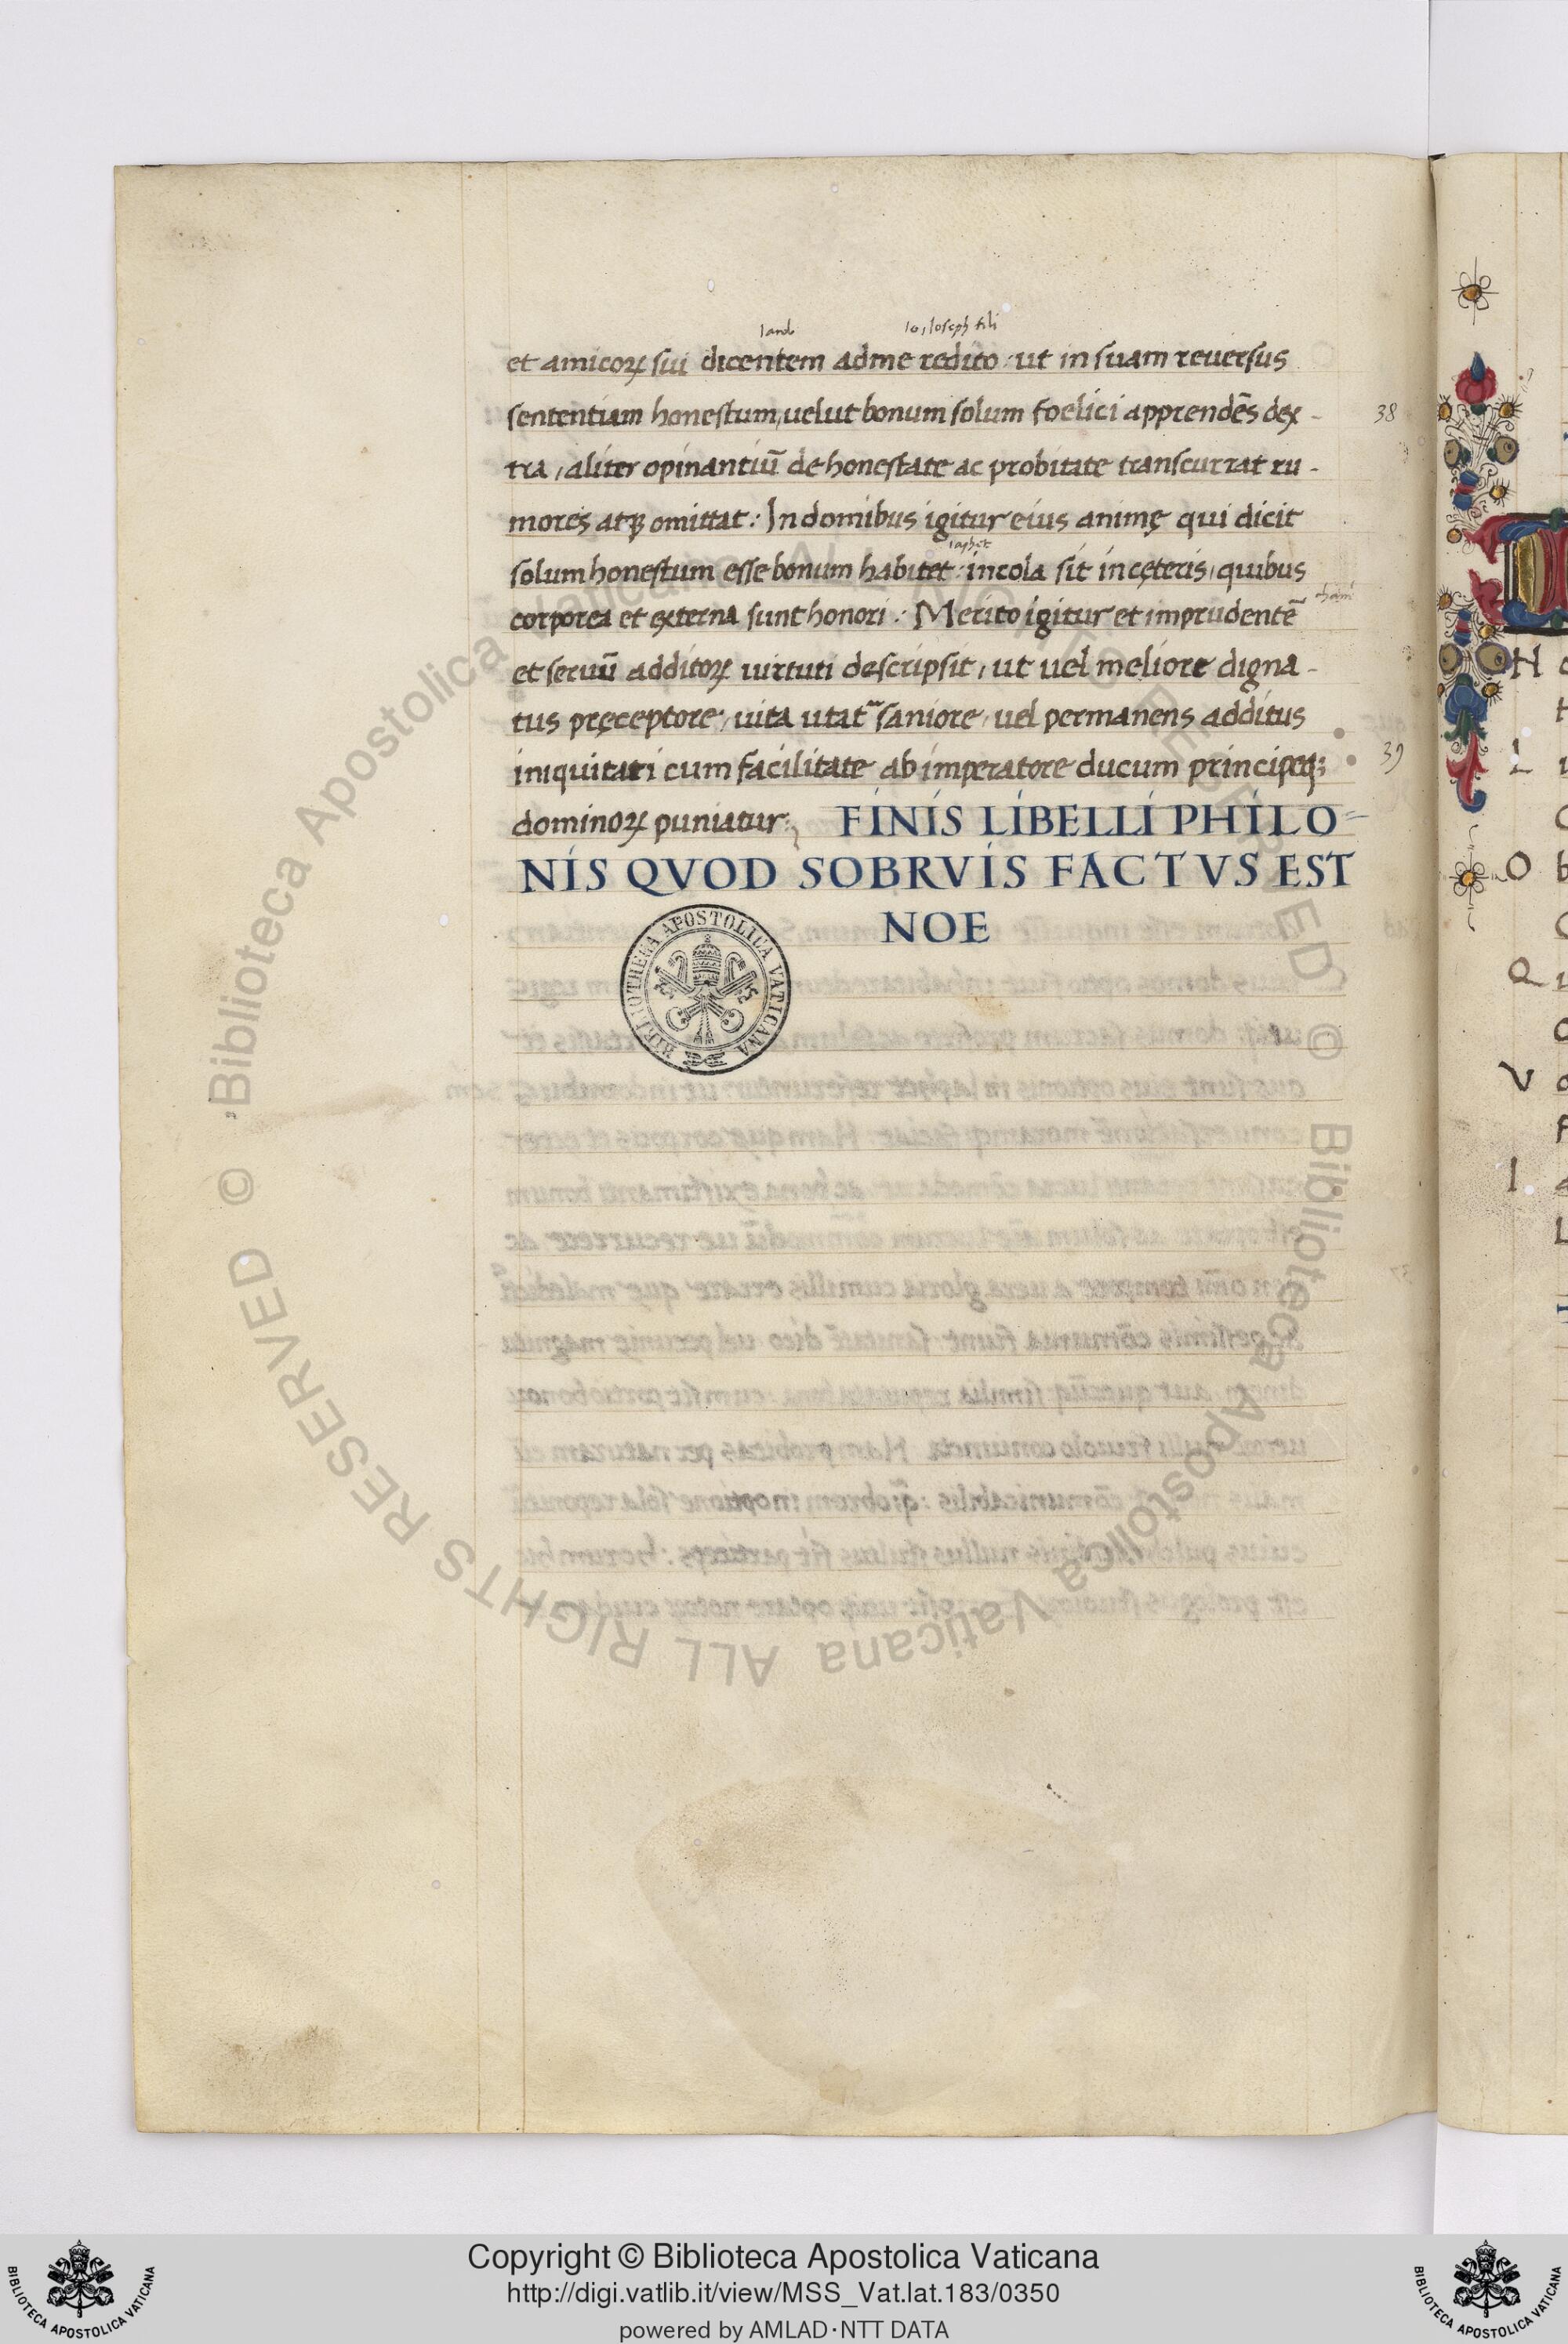 Iacob Io, Ioseph fili
et amicoꝝ sui dicentem adme redito: ut in suam reuersus
sententiam honestum, uelut bonum solum foelici apprendēs dex-
38
tra, aliter opinantiū de honestate ac probitate transcurrat ru-
mores atqꝫ omittat: In domibus igitur eius animę qui dicit
Iaphet
solum honestum esse bonum habitet: incola sit in cęteris, quibus
cham
corporea et externa sunt honori: Merito igitur et imprudentē
et seruū additoꝝ uirtuti descripsit, ut uel meliore digna-
tus pręceptore, uita utat̃ saniore, uel permanens additus
iniquitati cum facilitate ab imperatore ducum principeqꝫ
39
dominoꝝ puniatur: FINIS LIBELLI PHILO-
NIS QVOD SOBRVIS FACTVS EST
NOE
BIBLIOTHECA APOSTOLICA VATICANA
© Biblioteca Apostolica Vaticana ALL RIGHTS RESERVED
© Biblioteca Apostolica Vaticana ALL RIGHTS RESERVED
H
L
O
Q
V
I
Copyright © Biblioteca Apostolica Vaticana
http://digi.vatlib.it/view/MSS_Vat.lat.183/0350
powered by AMLAD·NTT DATA
BIBLIOTECA APOSTOLICA VATICANA
BIBLIOTECA APOSTOLICA VATICANA